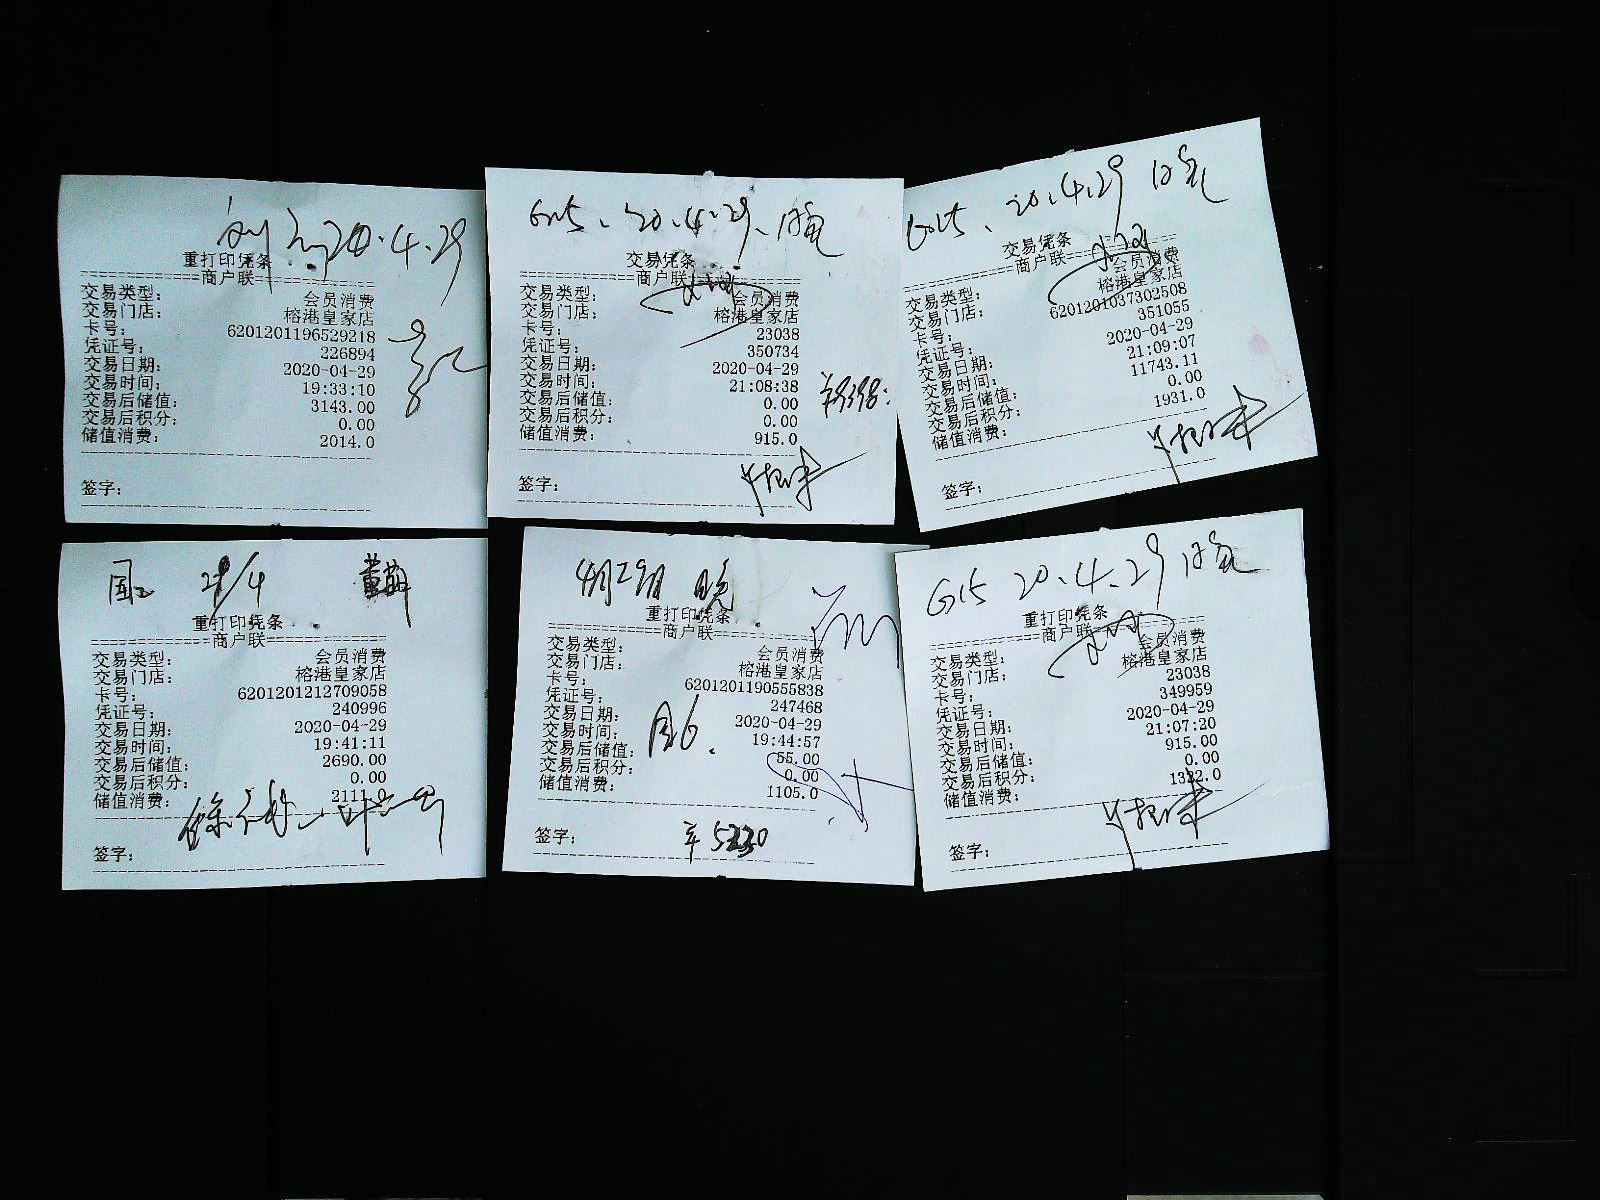 20.4.29
重打印凭条
商户联
交易类型： 会员消费
交易门店： 榕港皇家店
卡号： 6201201196529218
凭证号： 226894
交易日期： 2020-04-29
交易时间： 19:33:10
交易后储值： 3143.00
交易后积分： 0.00
储值消费： 2014.0
签字：
G15、20.4.29、
交易凭条
商户联
交易类型： 会员消费
交易门店： 榕港皇家店
卡号： 23038
凭证号： 350734
交易日期： 2020-04-29
交易时间： 21:08:38
交易后储值： 0.00
交易后积分： 0.00
储值消费： 915.0
签字：
20.4.29
交易凭条
商户联
交易类型： 会员消费
交易门店： 榕港皇家店
卡号： 6201201037302508
凭证号： 351055
交易日期： 2020-04-29
交易时间： 21:09:07
交易后储值： 11743.11
交易后积分： 0.00
储值消费： 1931.0
签字：
29/4
重打印凭条
商户联
交易类型： 会员消费
交易门店： 榕港皇家店
卡号： 6201201212709058
凭证号： 240996
交易日期： 2020-04-29
交易时间： 19:41:11
交易后储值： 2690.00
交易后积分： 0.00
储值消费： 2111.0
签字：
4月29日 晚
重打印凭条
商户联
交易类型： 会员消费
交易门店： 榕港皇家店
卡号： 6201201190555838
凭证号： 247468
交易日期： 2020-04-29
交易时间： 19:44:57
交易后储值： 55.00
交易后积分： 0.00
储值消费： 1105.0
签字：
G15 20.4.29
重打印凭条
商户联
交易类型： 会员消费
交易门店： 榕港皇家店
卡号： 23038
凭证号： 349959
交易日期： 2020-04-29
交易时间： 21:07:20
交易后储值： 915.00
交易后积分： 0.00
储值消费： 1332.0
签字：